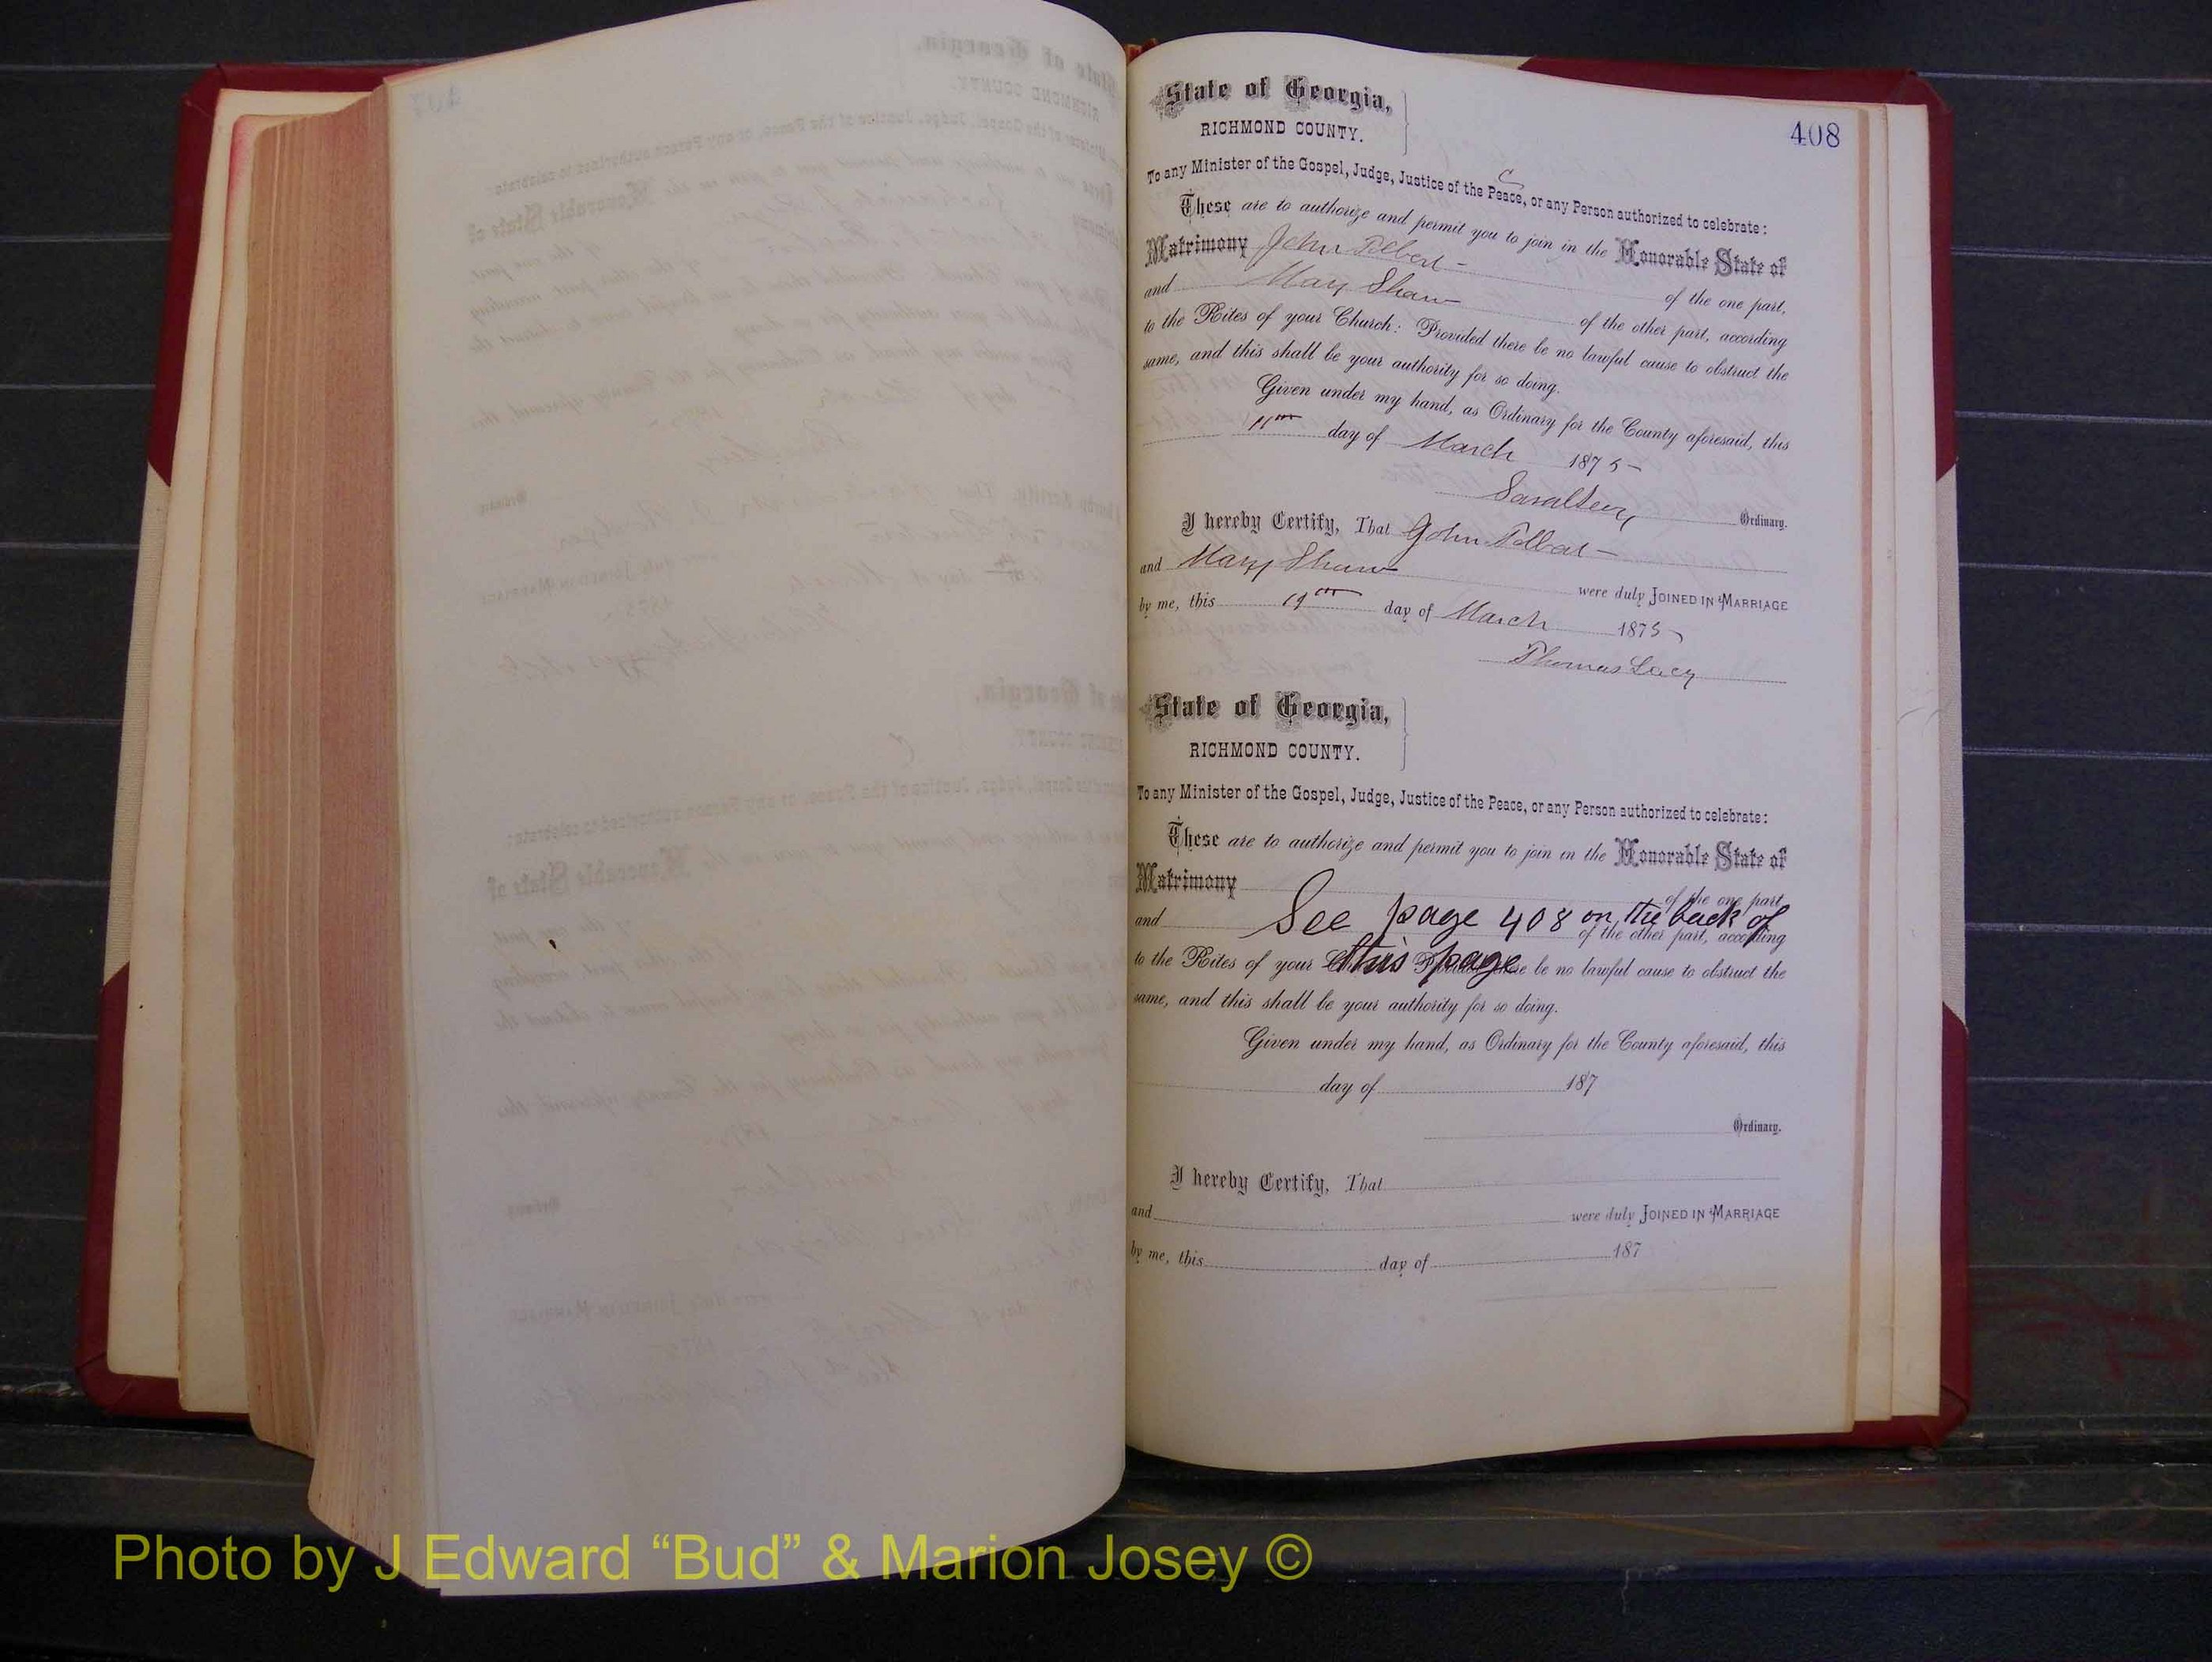 408
State of Georgia,
RICHMOND COUNTY.
C
To any Minister of the Gospel, Judge, Justice of the Peace, or any Person authorized to celebrate:
These are to authorize and permit you to join in the Honorable State of
Matrimony John Tolbert - of the one part,
and Mary Shaw of the other part, according
to the Rites of your Church: Provided there be no lawful cause to obstruct the
same, and this shall be your authority for so doing.
Given under my hand, as Ordinary for the County aforesaid, this
11th day of March 1875-
Ordinary.
I hereby Certify, That John Tolbert -
and Mary Shaw were duly JOINED IN MARRIAGE
by me, this day of March 1875
Thomas Lacy
State of Georgia,
RICHMOND COUNTY.
To any Minister of the Gospel, Judge, Justice of the Peace, or any Person authorized to celebrate:
These are to authorize and permit you to join in the Honorable State of
Matrimony of the one part,
and See page 408 on the back of
of the other part, according
this page
to the Rites of your be no lawful cause to obstruct the
same, and this shall be your authority for so doing.
Given under my hand, as Ordinary for the County aforesaid, this
day of 187
Ordinary.
I hereby Certify, That
and were duly JOINED IN MARRIAGE
by me, this day of 187
Photo by J Edward “Bud” & Marion Josey ©